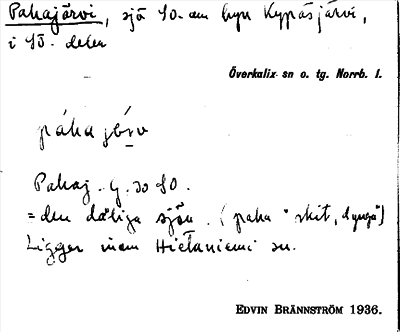 Pahajärvi, sjö SO. om byn Kypäsjärvi,
i SÖ. delen
Överkalix sn o. tg. Norrb. l.
páha jérv
Pahaj. G. 30 SO.
= den dåliga sjön. (paha "skit, dynga")
Ligger inom Hietaniemi sn.
EDVIN BRÄNNSTRÖM 1936.